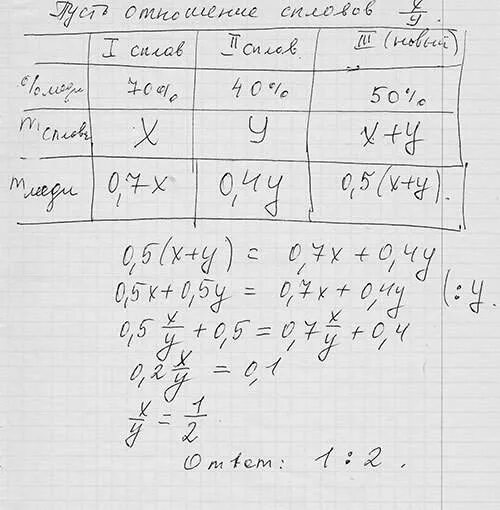 Пусть отношение сплавов x/y.
I сплав II сплав III (новый)
% меди 70% 40% 50%
m сплава x y x+y
m меди 0,7x 0,4y 0,5(x+y).
0,5(x+y) = 0,7x + 0,4y
0,5x+0,5y = 0,7x + 0,4y (:y.
0,5 x/y + 0,5 = 0,7 x/y + 0,4
0,2 x/y = 0,1
x/y = 1/2
Ответ: 1:2.